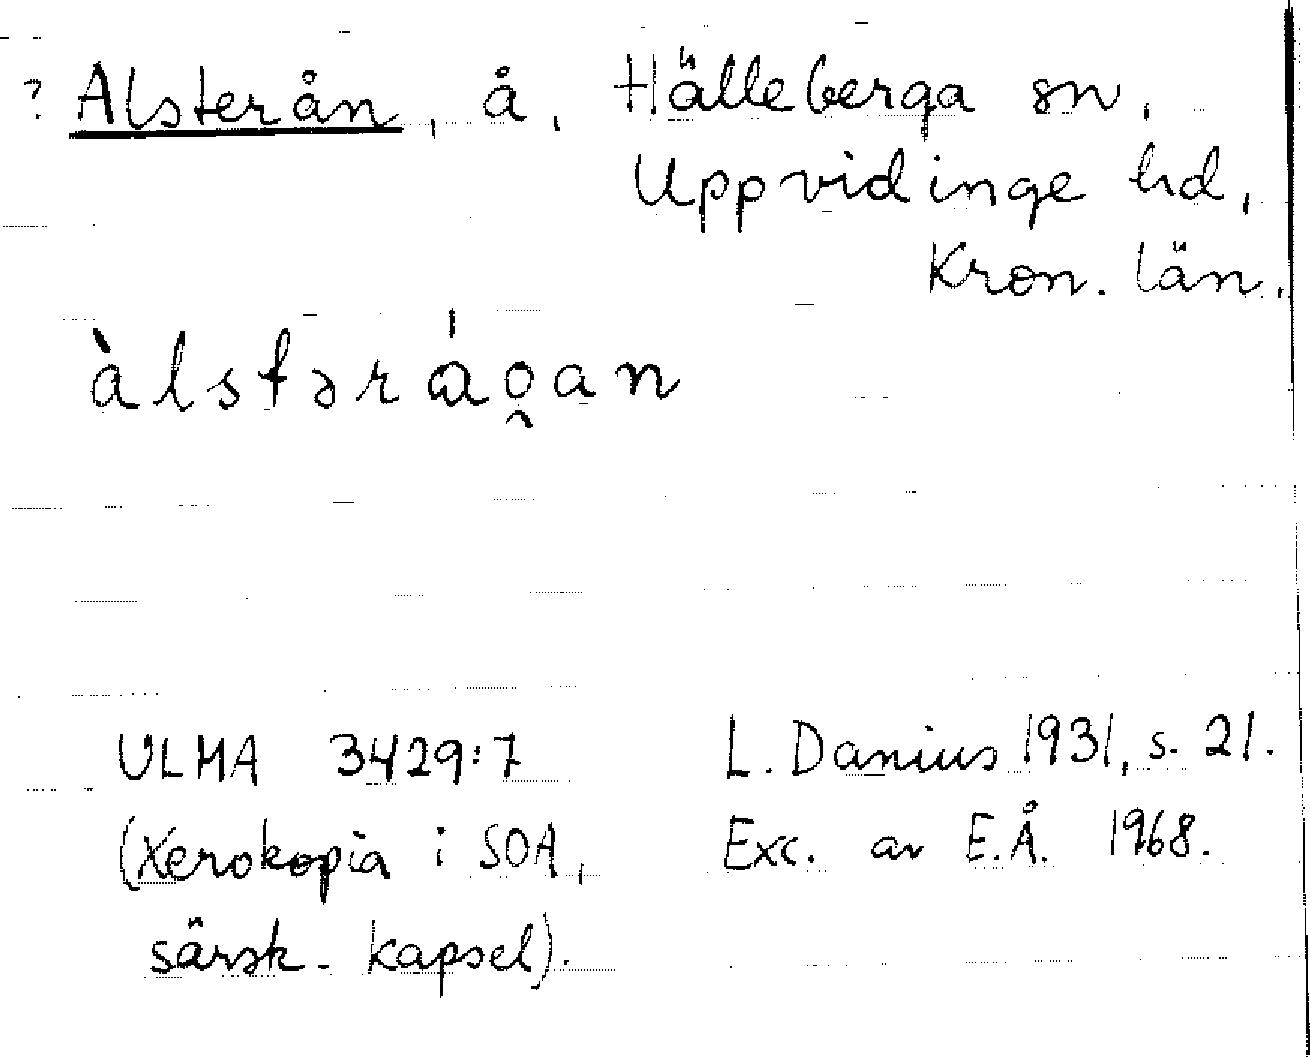 ? Alsterån, å, Hälleberga sn,
Uppvidinge hd,
Kron. län.
àlstəráo̭an
ULMA 3429:7
(Xerokopia i SOA,
särsk. kapsel).
L. Danius 1931, s. 21.
Exc. av E.Å. 1968.